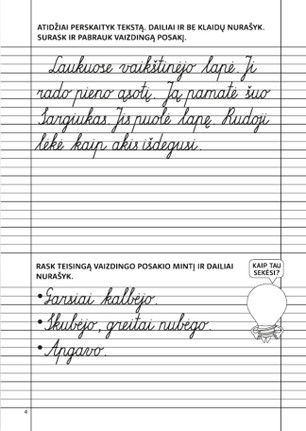 ATIDŽIAI PERSKAITYK TEKSTĄ. DAILIAI IR BE KLAIDŲ NURAŠYK.
SURASK IR PABRAUK VAIZDINGĄ POSAKĮ.
Laukuose vaikštinėjo lapė. Ji
rado pieno ąsotį. Ją pamatė šuo
Sargiukas. Jis puolė lapę. Rudoji
lėkė kaip akis išdegusi.
RASK TEISINGĄ VAIZDINGO POSAKIO MINTĮ IR DAILIAI
NURAŠYK.
KAIP TAU
SEKĖSI?
• Garsiai kalbėjo.
• Skubėjo, greitai nubėgo.
• Apgavo.
4